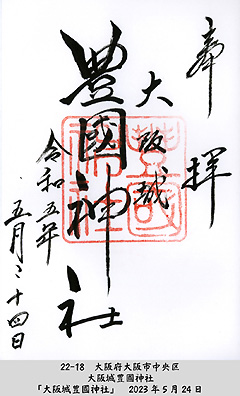 奉拝
大阪城
豊國神社
令和五年
五月二十四日
22-18　大阪府大阪市中央区
大阪城豊國神社
「大阪城豊國神社」　2023年5月24日